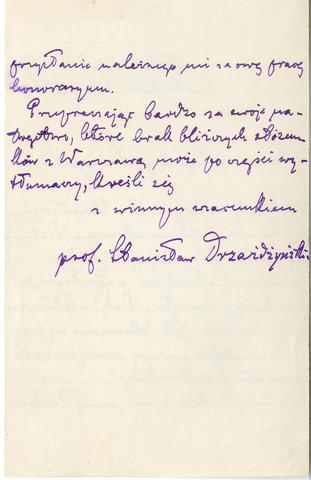 przysłanie należnego mi za ową pracę
honorarjum.
Przepraszając bardzo za swoje na-
tręctwo, które brak bliższych stosun-
ków z Warszawą może po części wy-
tłumaczy, kreśli się
z winnym szacunkiem
prof. Stanisław Drzażdżyński